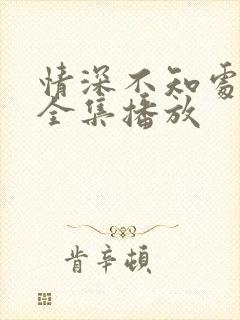 情深不知處
全集播放
肯辛頓